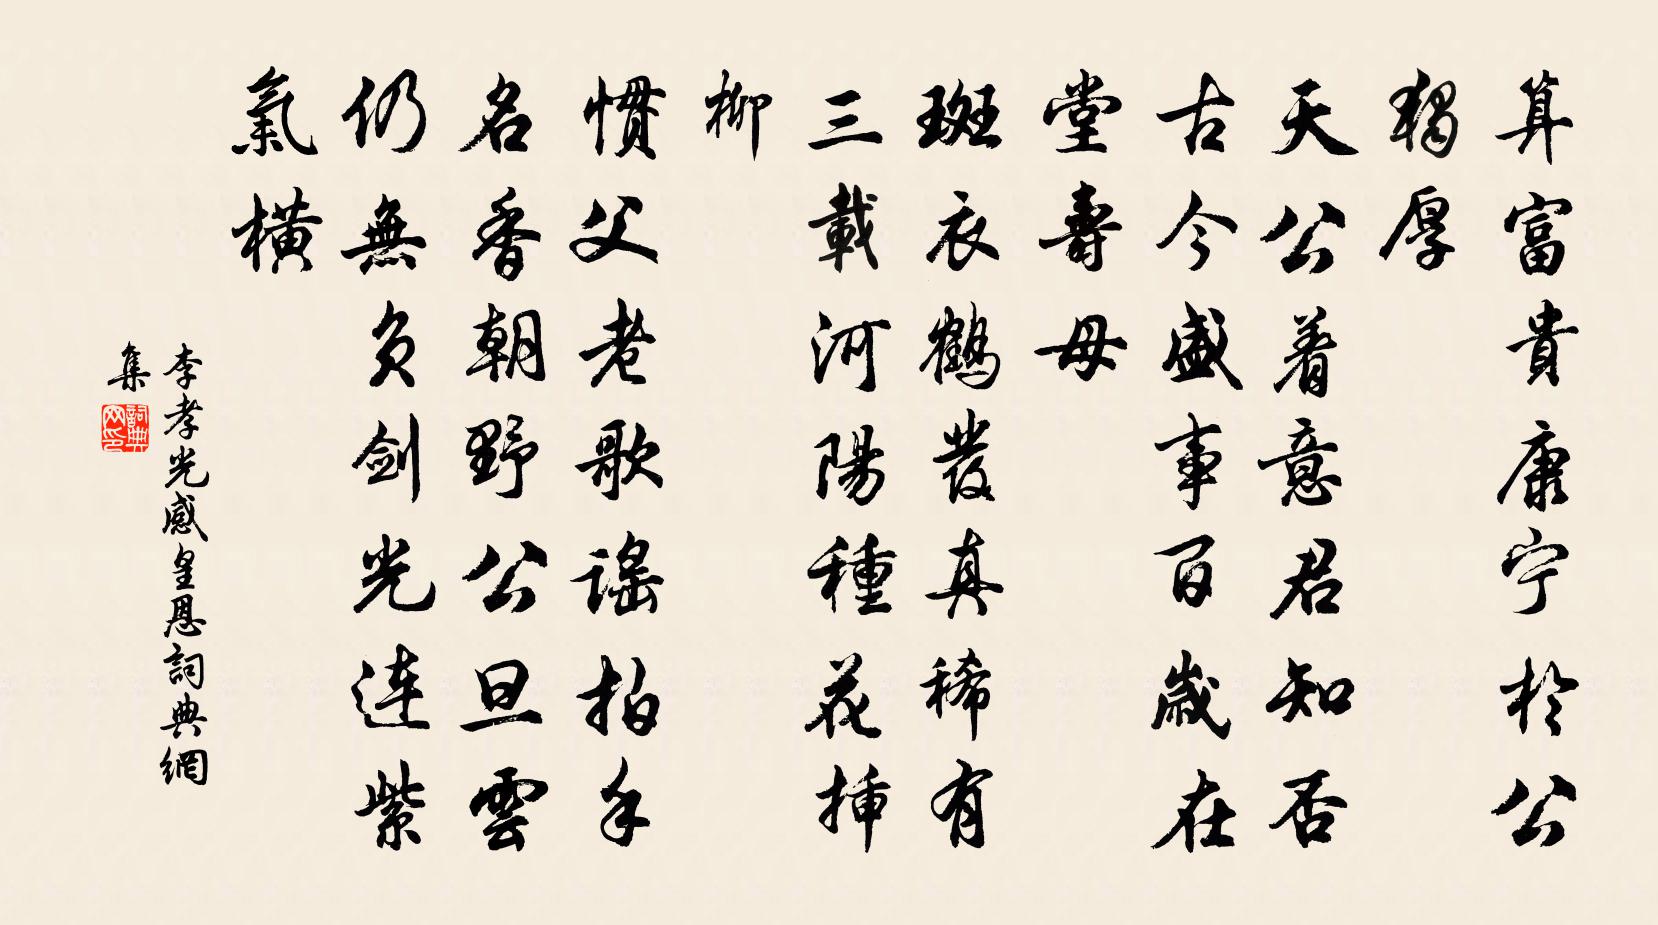 算富貴康宁於公
獨厚
天公着意君知否
古今盛事百歲在
堂壽母
斑衣鶴髮真稀有
三載河陽種花挿
柳
慣父老歌謡拍手
名香朝野公旦雲
仍無負剑光连紫
氣橫
李孝光感皇恩詞典網
集
詞典网印